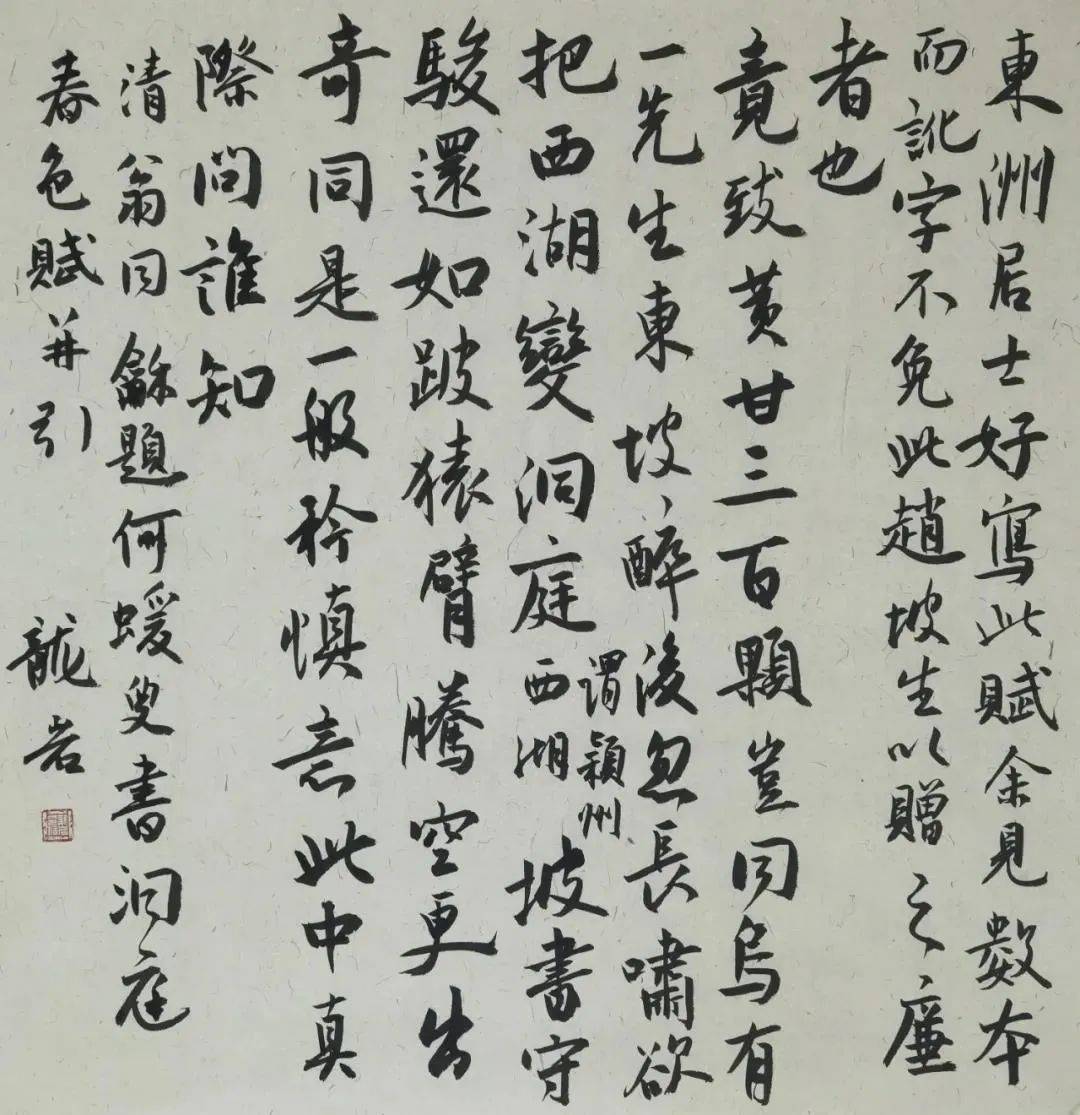 東洲居士好寫此賦余見數本
而訛字不免此趙坡生以贈之廉
者也
竟致黃甘三百顆豈同烏有
一先生東坡醉後忽長嘯欲
把西湖變洞庭 謂潁州西湖 坡書守
駿還如跛猿臂騰空更出
奇同是一般矜慎意此中真
際問誰知
清翁同龢題何蝯叟書洞庭
春色賦并引 龍岩